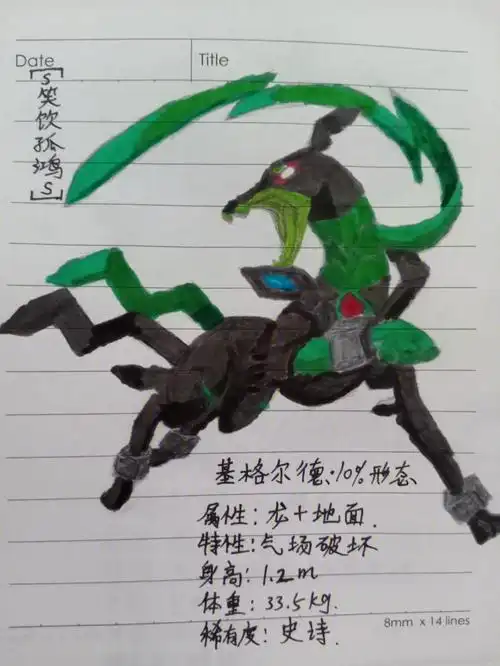 Date
Title
[S笑饮孤鸿S]
基格尔德:10%形态
属性:龙+地面.
特性:气场破坏
身高:1.2m
体重:33.5kg.
稀有度:史诗.
8mm x 14 lines